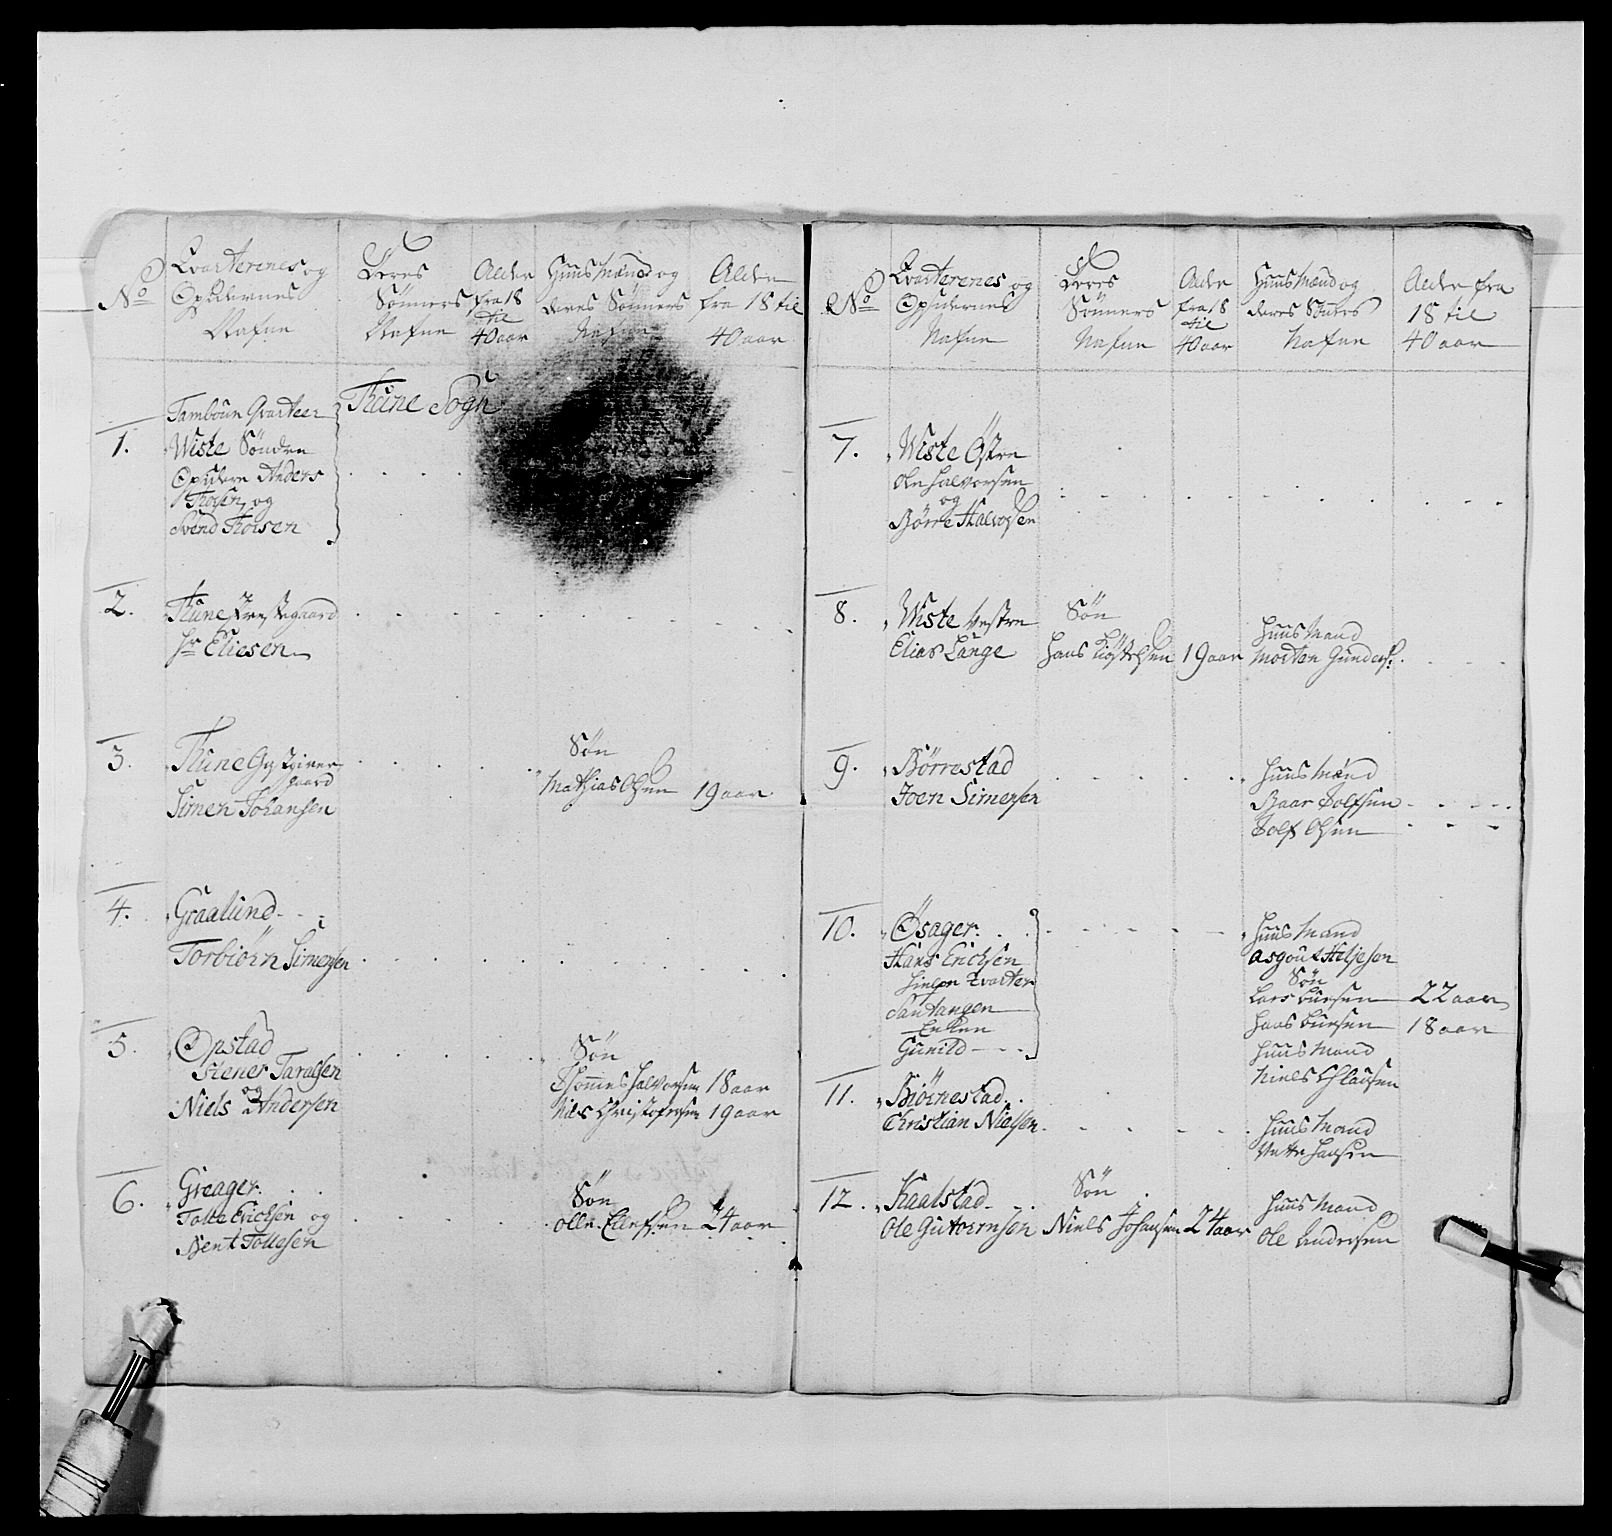 No
Qvarterenes og
Opsidernes
Nafne
Deres
Sønners
Nafne
Alder
fra 18
til
40 aar
Huus Mænd og
deres Sønners
Nafne
Alder
fra 18 til
40 aar
Thune Sogn
1.
Tambour Qvarteer
Wiste Søndre
Opsidere Anders
Thoisen og
Svend Thoisen
2.
Thune Prestegaard
Hr Eliesen
3.
Thune Gystgiver
gaard
Simen Johansen
Søn
Mathias Olsen 19 aar
4.
Graalund
Torbiørn Simensen
5.
Opstad
Stener Taralsen
og
Niels Andersen
Søn
Thommes Halvorsen 18 aar
Niels Christophersen 19 aar
6.
Greager
Tolle Erichsen og
Bent Tollesen
Søn
Olle Ellefsen 24 aar
No
Qvarterenes og
Opsidernes
Nafne
Deres
Sønners
Nafne
Alder
fra 18
til
40 aar
Huus Mænd og
deres Sønners
Nafne
Alder fra
18 til
40 aar
7.
Wiste Østre
Ole Halvorsen
og
Børre Halvorsen
8.
Wiste Vestre
Elias Lange
Søn
Hans Kiøstelsen 19 aar
Huus Mand
Morten Gunders:
9.
Børrestad
Joen Simensen
Huus Mænd
Baar Rolfsen
Rolf Olsen
10.
Øsager
Hans Erichsen
Hielpe Qvarter
Santangen
Enken
Gunild
Huus Mand
Asgout Heljesen
Søn
Lars Buesen 22 aar
Hans Buesen 18 aar
Huus Mand
Niels Clausen
11.
Biørnestad
Christian Nielsen
Huus Mand
Vette Hansen
12.
Kaalstad
Ole Guttormsen
Søn
Niels Johansen 24 aar
Huus Mand
Ole Andersen